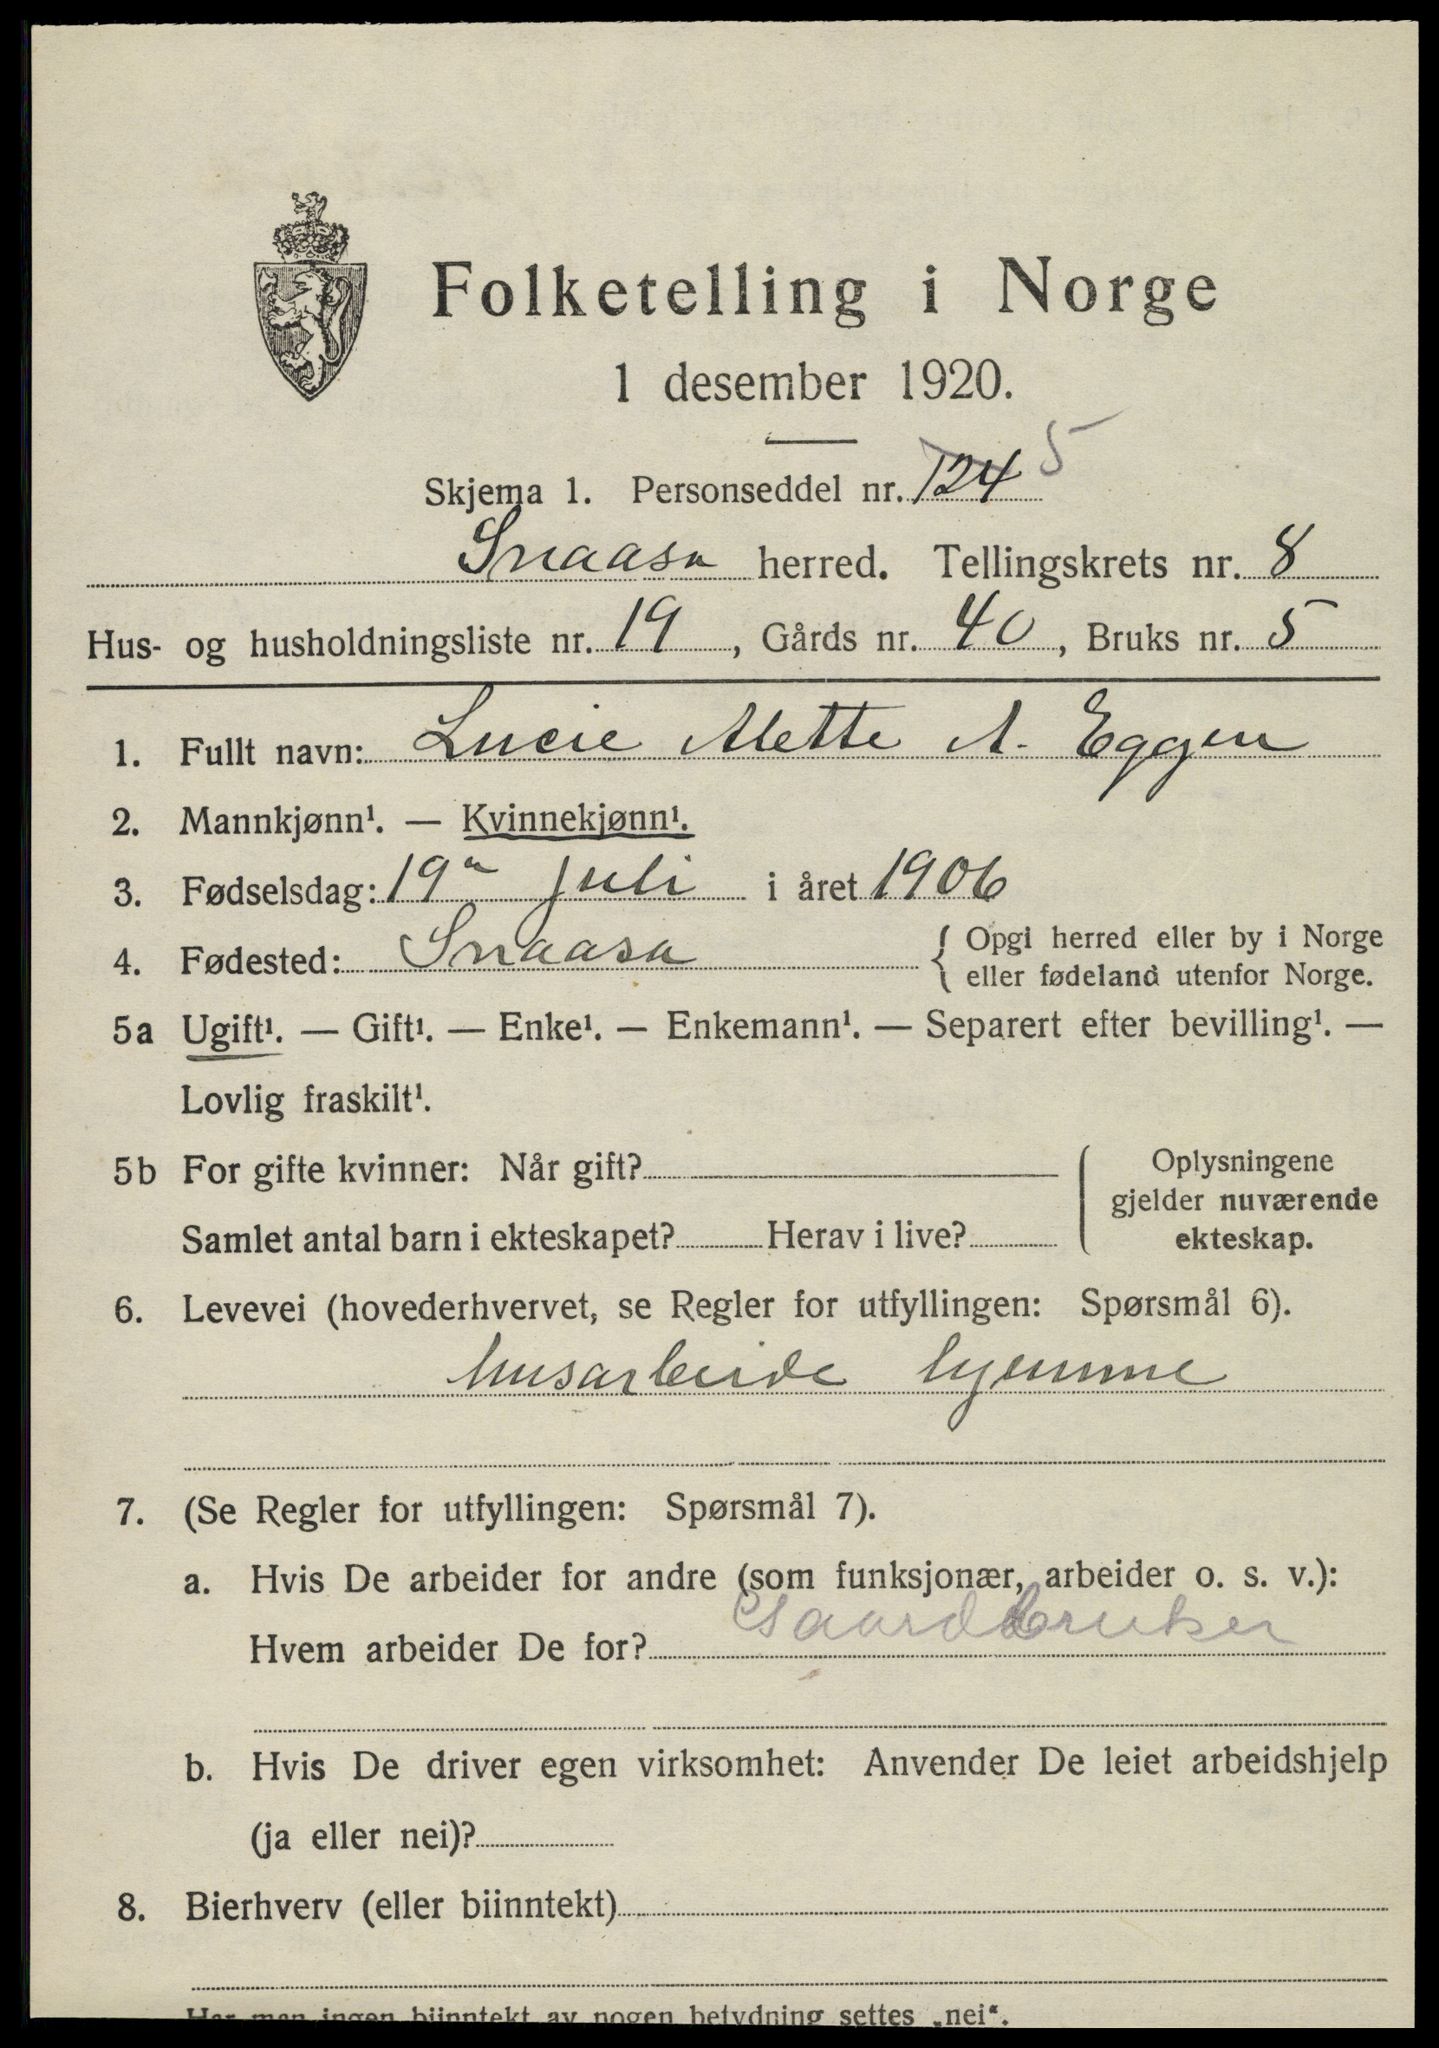 Folketelling i Norge
1 desember 1920.
Skjema 1. Personseddel nr. 124 5
Snaasa herred. Tellingskrets nr. 8
Hus- og husholdningsliste nr. 19, Gårds nr. 40, Bruks nr. 5
1. Fullt navn: Lucie Alette A. Eggen
2. Mannkjønn¹. — Kvinnekjønn¹.
3. Fødselsdag: 19" juli i året 1906
4. Fødested: Snaasa { Opgi herred eller by i Norge
eller fødeland utenfor Norge.
5a Ugift¹. — Gift¹. — Enke¹. — Enkemann¹. — Separert efter bevilling¹. —
Lovlig fraskilt¹.
5b For gifte kvinner: Når gift?
Samlet antal barn i ekteskapet? Herav i live?
Oplysningene
gjelder nuværende
ekteskap.
6. Levevei (hovederhvervet, se Regler for utfyllingen: Spørsmål 6).
husarbeide hjemme
7. (Se Regler for utfyllingen: Spørsmål 7).
a. Hvis De arbeider for andre (som funksjonær, arbeider o. s. v.):
Hvem arbeider De for? Gaardbruker
b. Hvis De driver egen virksomhet: Anvender De leiet arbeidshjelp
(ja eller nei)?
8. Bierhverv (eller biinntekt)
Har man ingen biinntekt av nogen betydning settes „nei“.